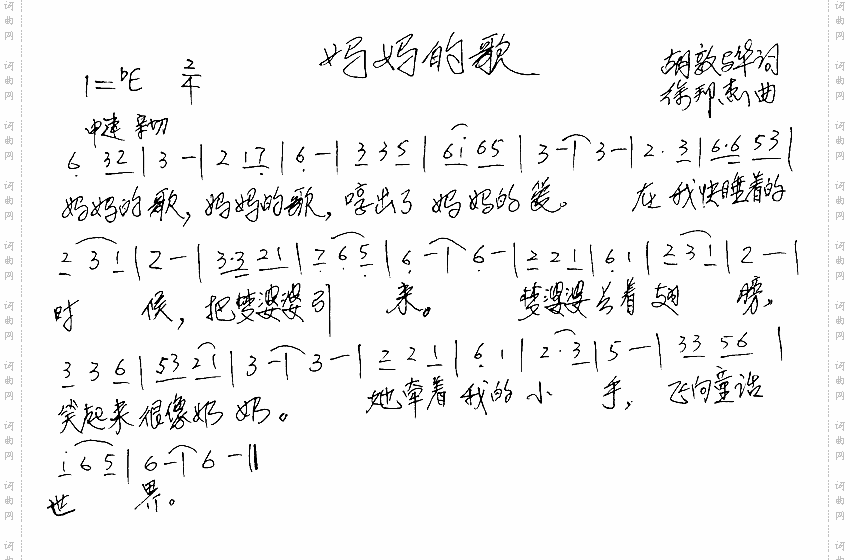 妈妈的歌
1=♭E 2/4
胡敦华词
徐邦杰曲
中速 亲切
6 32 | 3 - | 2 17 | 6 - | 3 3 5 | 6i 65 | 3 - | 3 - | 2· 3 | 6·6 53 |
妈妈的歌,妈妈的歌,哼出了 妈妈的爱。 在我快睡着的
2 3 1 | 2 - | 3·3 21 | 2 6 5 | 6 - | 6 - | 2 2 1 | 6 1 | 2 3 1 | 2 - |
时 候,把梦婆婆引 来。 梦婆婆长着翅 膀。
3 3 6 | 53 21 | 3 - | 3 - | 2 2 1 | 6 1 | 2·3 | 5 - | 33 56 |
笑起来很像奶 奶。 她牵着我的小 手,飞向童话
i 6 5 | 6 - | 6 - ‖
世 界。
词曲网